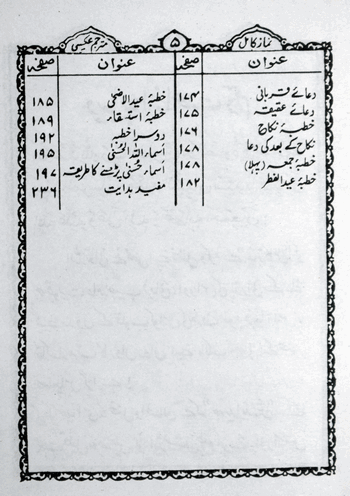 نماز کامل ۵ مترجم عکسی
عنوان صفحہ
دعائے قربانی ۱۷۴
دعائے عقیقہ ۱۷۵
خطبۂ نکاح ۱۷۶
نکاح کے بعد کی دعا ۱۷۸
خطبۂ جمعہ (پہلا) ۱۷۸
خطبۂ عید الفطر ۱۸۲
عنوان صفحہ
خطبۂ عید الاضحیٰ ۱۸۵
خطبۂ استسقاء ۱۸۹
دوسرا خطبہ ۱۹۲
اسماء اللہ الحسنیٰ ۱۹۵
اسماء حسنیٰ پڑھنے کا طریقہ ۱۹۷
مفید ہدایت ۲۳۶